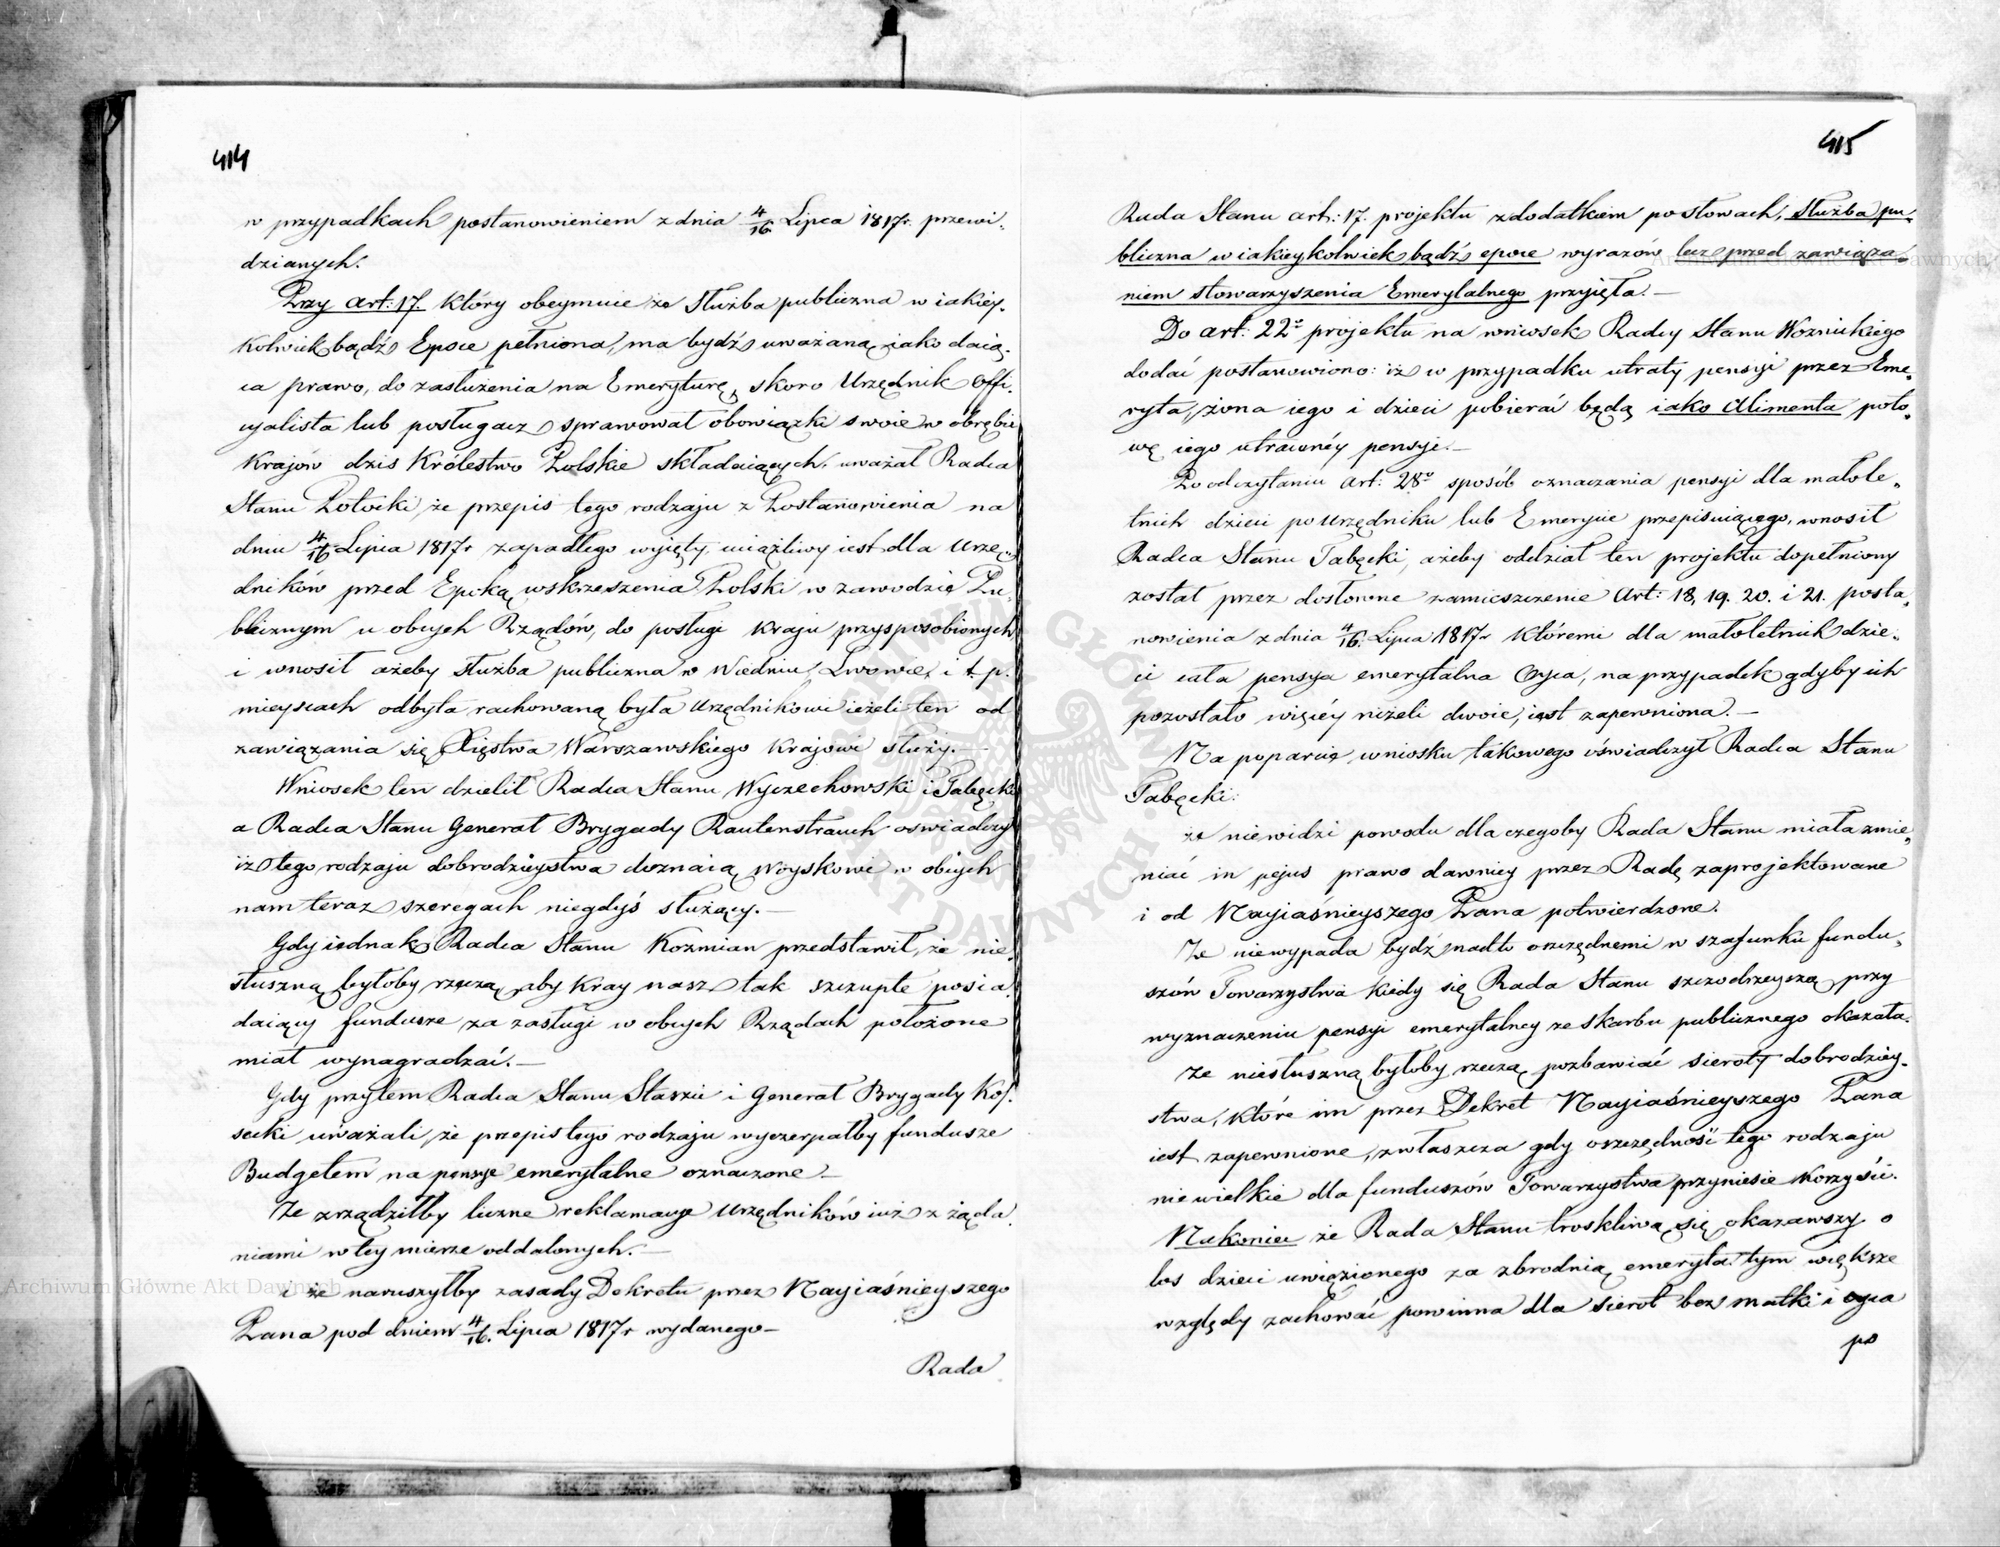 414
w przypadkach postanowieniem z dnia 4/16 Lipca 1817r. przewi-
dzianych.
Przy art: 17. który obeymuie że służba publiczna w iakiey-
kolwiek bądź Epoce pełniona, ma bydź uważaną iako daią-
ca prawo, do zasłużenia na Emeryturę, skoro Urzędnik Offi-
cyalista lub posługacz sprawował obowiązki swoie w obrębie
Kraiów dziś Królestwo Polskie składaiących, uważał Radca
Stanu Potocki, że przepis tego rodzaju z Postanowienia na
dniu 4/16 Lipca 1817r zapadłego wyięty, uciążliwy iest dla Urzę-
dników przed Epoką wskrzeszenia Polski w zawodzie Pu-
blicznym u obcych Rządów, do posługi kraju przysposobionych
i wnosił ażeby służba publiczna w Wiedniu, Lwowie, i t. p.
mieyscach odbyta rachowaną była Urzędnikowi ieżeli ten od
zawiązania się Xięstwa Warszawskiego krajowi służy.—
Wniosek ten dzielił Radca Stanu Wyczechowski i Tabęcki
a Radca Stanu Generał Brygady Rautenstrauch oświadczył
iż tego rodzaju dobrodzieystwa doznaią Woyskowi w obcych
nam teraz szeregach niegdyś służący.—
Gdy iednak Radca Stanu Kozmian przedstawił, że nie-
słuszną byłoby rzeczą, aby Kray nasz tak szczupłe posia-
daiący fundusze za zasługi w obcych Rządach położone
miał wynagradzać.—
Gdy przytem Radca Stanu Staszic i Generał Brygady Kos-
secki uważali, że przepis tego rodzaju wyczerpałby fundusze
Budgetem na pensye emerytalne oznaczone—
Że zrządziłby liczne reklamacye Urzędników iuż z żąda-
niami w tey mierze oddalonych.—
i że naruszyłby zasady Dekretu przez Nayiaśnieyszego
Pana pod dniem 4/16. Lipca 1817r wydanego—
Rada
415
Rada Stanu art: 17. projektu z dodatkiem po słowach, Służba pu-
bliczna w iakieykolwiek bądź epoce wyrazów lecz przed zawiąza-
niem stowarzyszenia Emerytalnego przyięła.—
Do art: 22go projektu na wniosek Radcy Stanu Woznickiego
dodać postanowiono: iż w przypadku utraty pensyi przez Eme-
ryta, żona iego i dzieci pobierać będą iako Alimenta poło-
wę iego utraconéy pensyi.—
Po odczytaniu art: 28go sposób oznaczania pensyi dla małole-
tnich dzieci po Urzędniku lub Emerycie przepisuiącego, wnosił
Radca Stanu Tabęcki, ażeby oddział ten projektu dopełniony
został przez dosłowne zamieszczenie art: 18, 19. 20. i 21. posta-
nowienia z dnia 4/16. Lipca 1817r któremi dla małoletnich dzie-
ci cała pensya emerytalna Oyca, na przypadek gdyby ich
pozostało więcéy niżeli dwoie, iest zapewniona.—
Na poparcie wniosku takowego oświadczył Radca Stanu
Tabęcki:
że niewidzi powodu dla czegoby Rada Stanu miała zmie-
niać in pejus prawo dawniey przez Radę zaprojektowane
i od Nayiaśnieyszego Pana potwierdzone.
Że niewypada bydź nadto oszczędnemi w szafunku fundu-
szów Towarzystwa kiedy się Rada Stanu szczodrzeyszą przy
wyznaczeniu pensyi emerytalney ze skarbu publicznego okazała.
Że niesłuszną byłoby rzeczą, pozbawiać sieroty dobrodziey-
stwa, które im przez Dekret Nayiaśnieyszego Pana
iest zapewnione, zwłaszcza gdy oszczędność tego rodzaju
niewielkie dla funduszów Towarzystwa przyniesie korzyści.
Nakoniec że Rada Stanu troskliwą się okazawszy o
los dzieci uwięzionego za zbrodnią emeryta tym większe
względy zachować powinna dla sierot bez matki i oyca
po
Archiwum Główne Akt Dawnych
Archiwum Główne Akt Dawnych
ARCHIWUM GŁÓWNE AKT DAWNYCH